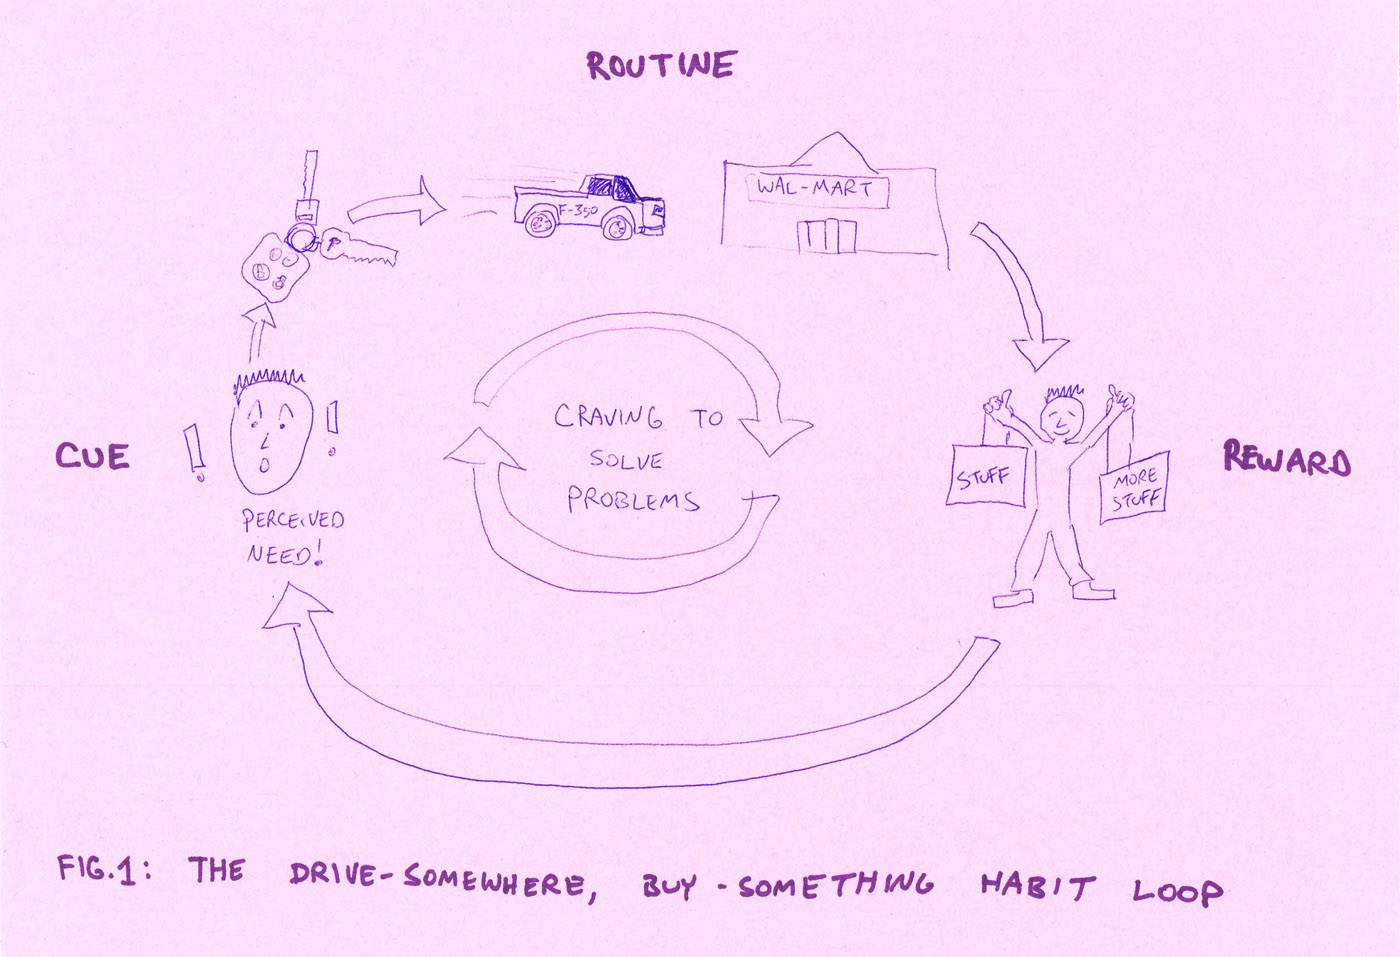 ROUTINE
F-350
WAL-MART
CRAVING TO
SOLVE
PROBLEMS
CUE
! !
PERCEIVED
NEED!
STUFF
MORE
STUFF
REWARD
FIG.1: THE DRIVE-SOMEWHERE, BUY-SOMETHING HABIT LOOP